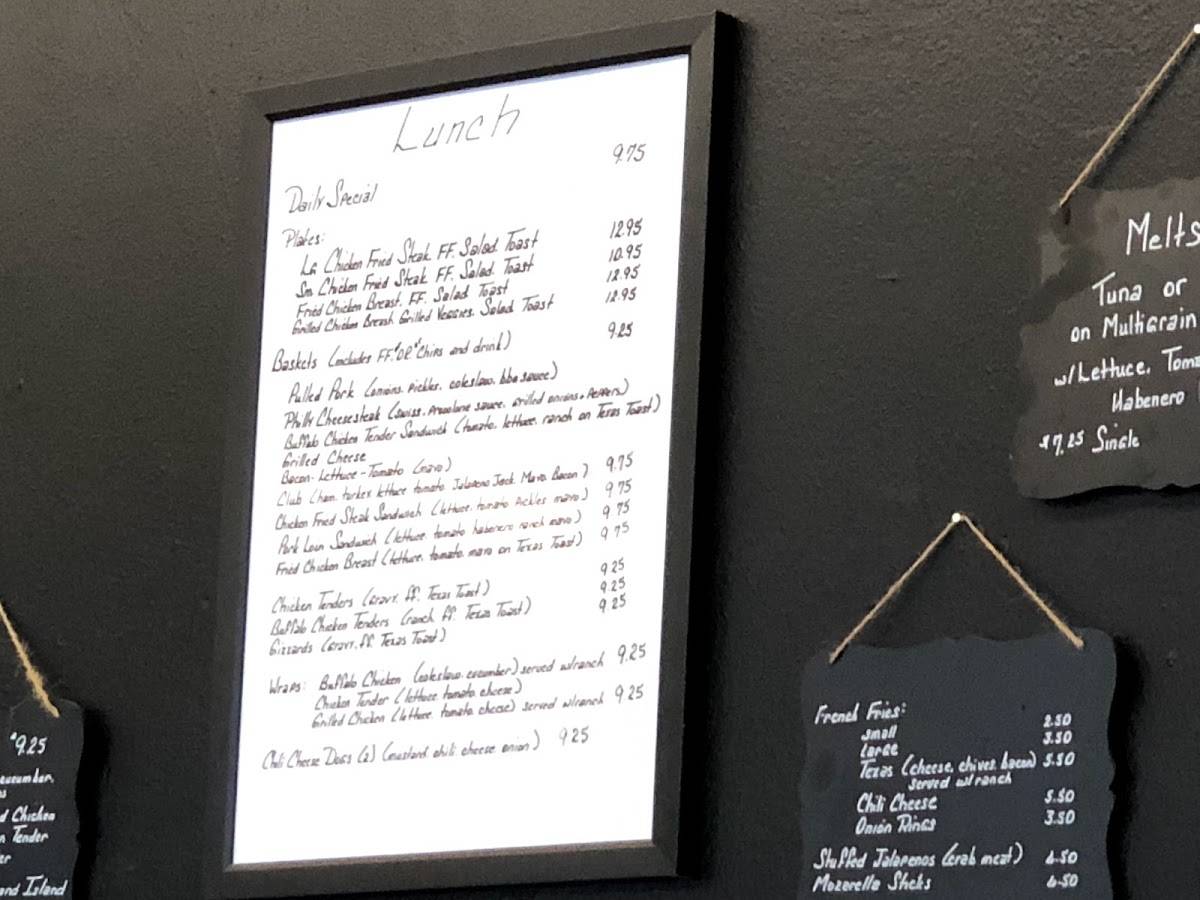 Lunch
Daily Special 9.75
Plates:
LG Chicken Fried Steak. FF. Salad. Toast 12.95
Sm. Chicken Fried Steak FF. Salad. Toast 10.95
Fried Chicken Breast. FF. Salad Toast 12.95
Grilled Chicken Breast. Grilled Veggies. Salad Toast 12.95
Baskets (includes FF. "OR" Chips and drink) 9.25
Pulled Pork (onions. pickles. coleslaw. bbq sauce)
Philly Cheesesteak (swiss. provolone sauce. grilled onions + peppers)
Buffalo Chicken Tender Sandwich (tomato. lettuce. ranch on Texas Toast)
Grilled Cheese
Bacon-Lettuce-Tomato (mayo)
Club (ham. turkey. lettuce tomato. Jalapeno Jack. Mayo. Bacon) 9.75
Chicken Fried Steak Sandwich (lettuce. tomato pickles mayo) 9.75
Pork Loin Sandwich (lettuce. tomato habenero ranch mayo) 9.75
Fried Chicken Breast (lettuce. tomato. mayo on Texas Toast) 9.75
Chicken Tenders (gravy. ff. Texas Toast) 9.25
Buffalo Chicken Tenders (ranch. ff. Texas Toast) 9.25
Gizzards (gravy. ff. Texas Toast) 9.25
Wraps: Buffalo Chicken (coleslaw. cucumber) served w/ranch 9.25
Chicken Tender (lettuce tomato cheese)
Grilled Chicken (lettuce. tomato. cheese) served w/ranch 9.25
Chili Cheese Dogs (2) (mustard. chili. cheese onion) 9.25
Melts
Tuna or
on Multigrain
w/Lettuce. Toma
Habenero
$7.25 Single
French Fries:
small 2.50
large 3.50
Texas (cheese. chives. bacon) 5.50
served w/ ranch
Chili Cheese 5.50
Onion Rings 3.50
Stuffed Jalapenos (crab meat) 6.50
Mozerella Sticks 6.50
$9.25
cucumber.
d Chicken
n Tender
er
and Island